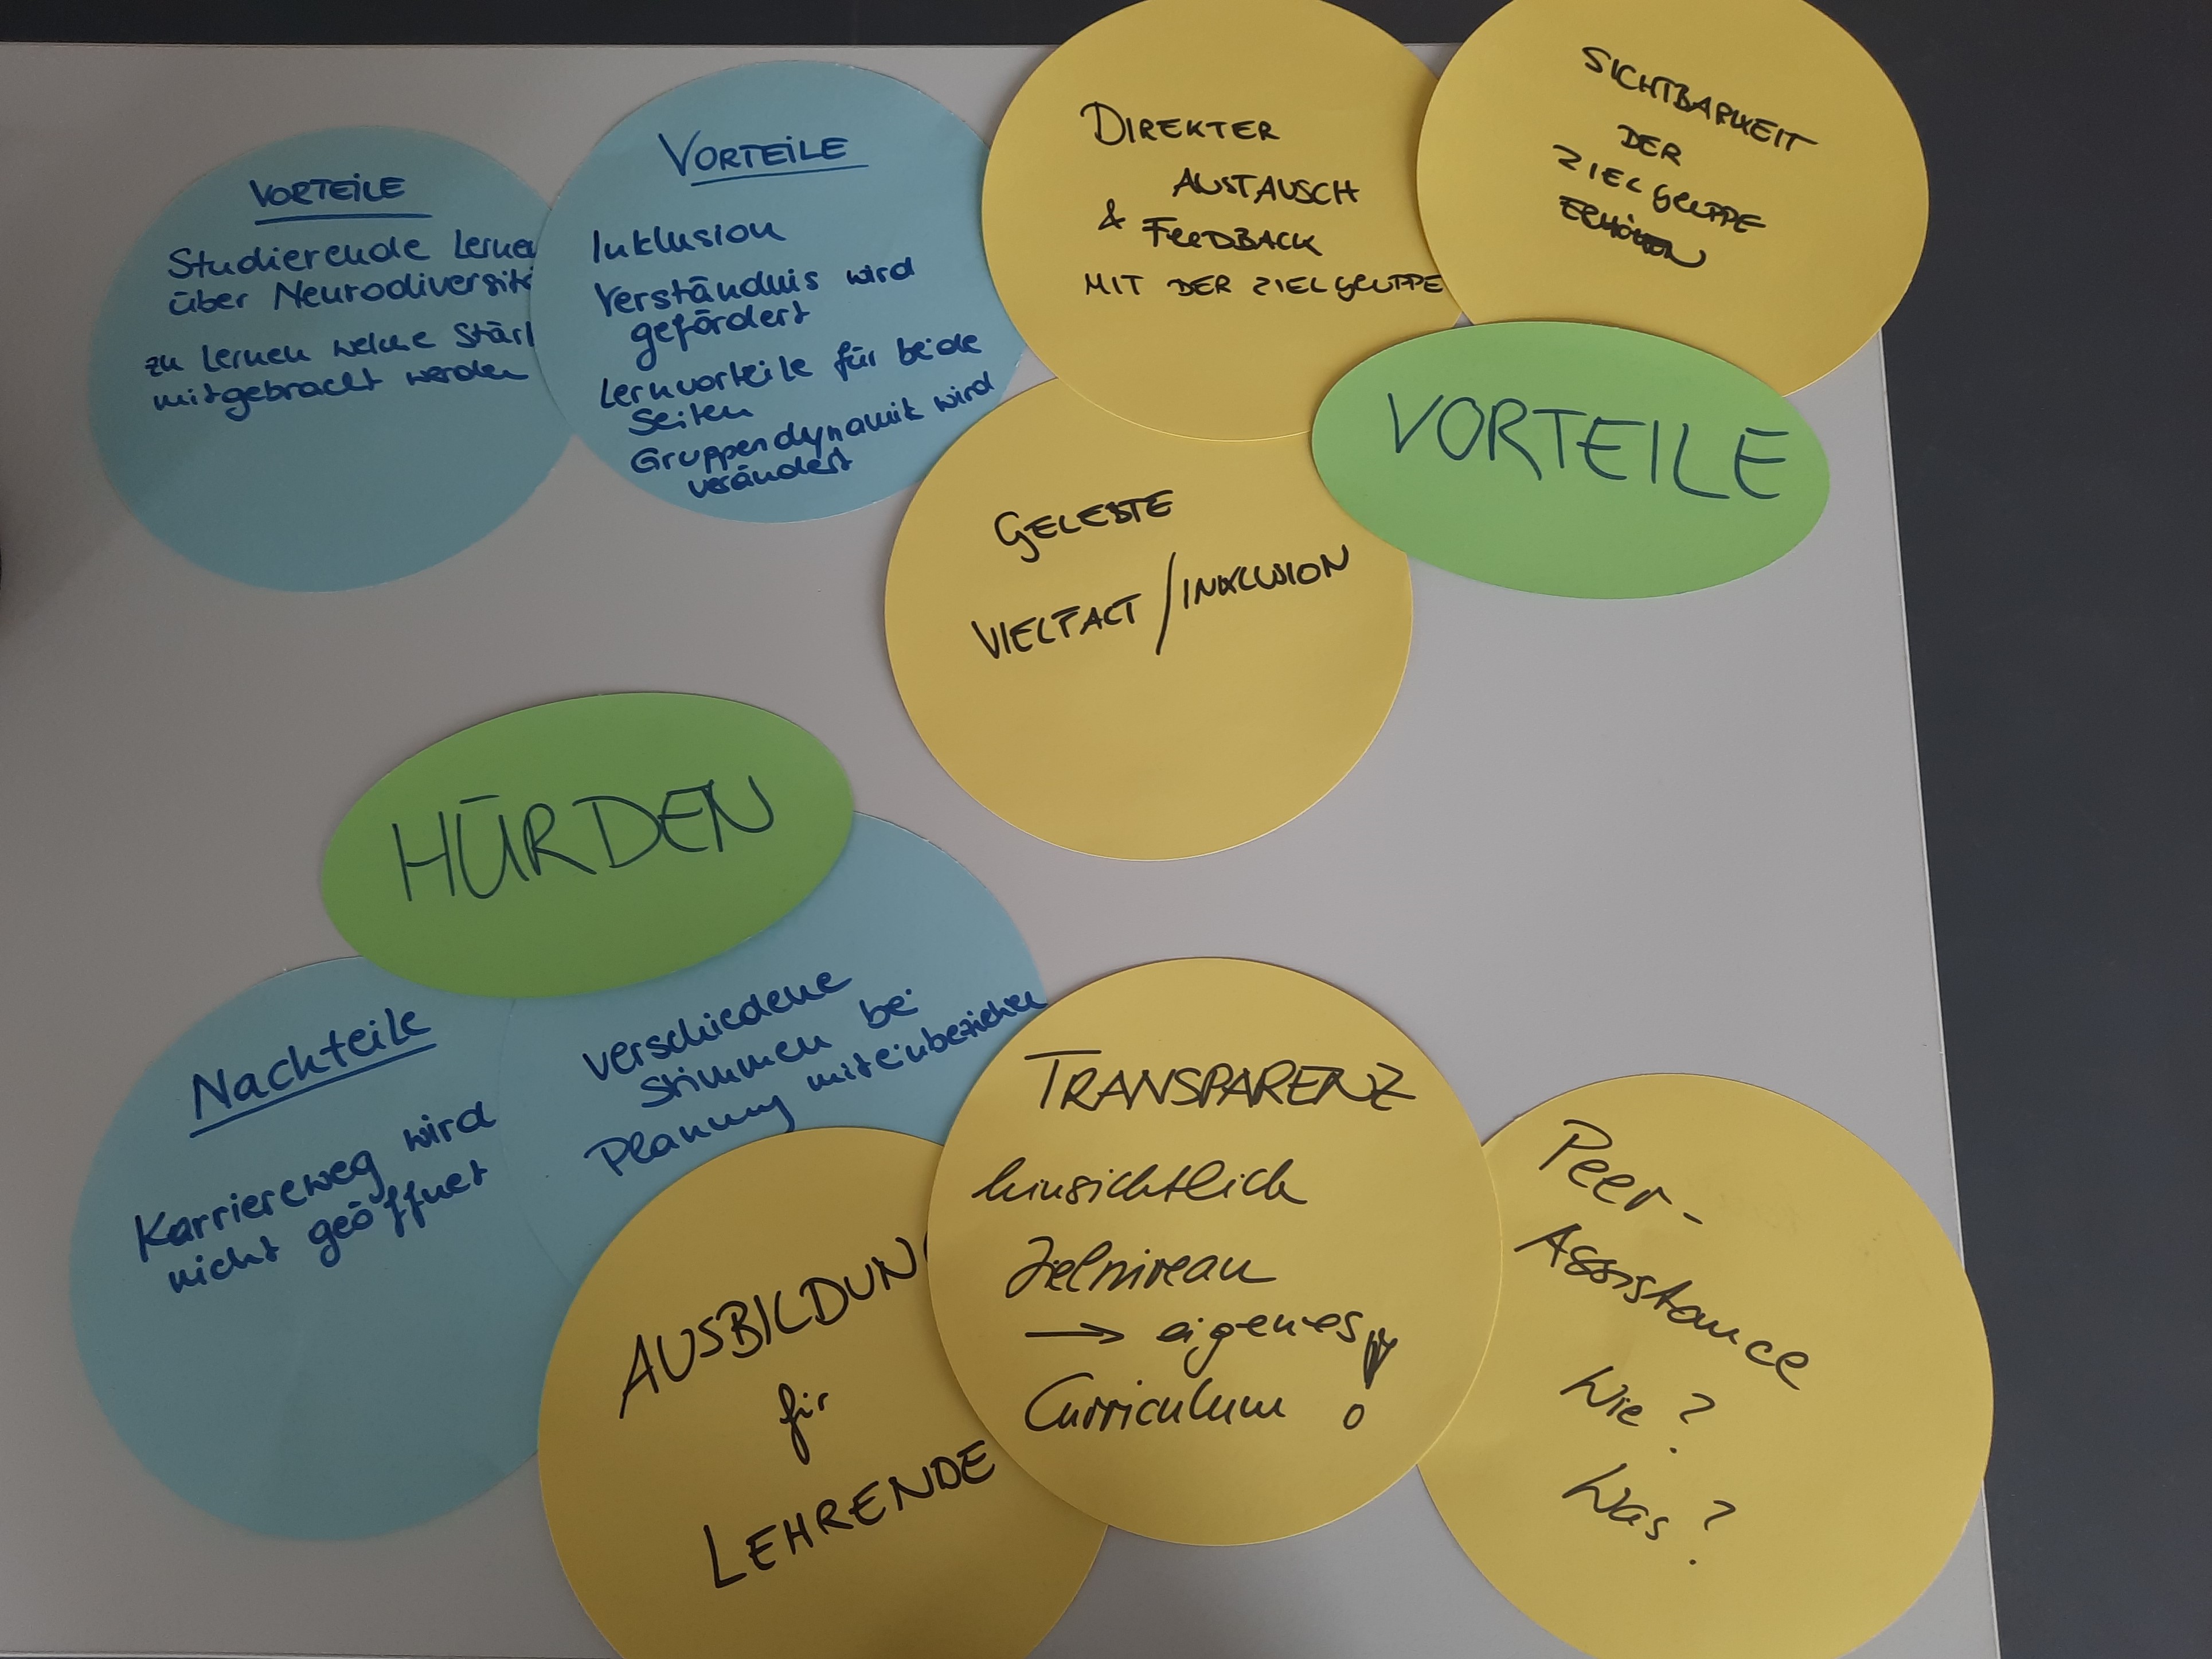 VORTEILE
Studierende lernen
über Neurodiversit
zu lernen welche Stärk
mitgebracht werden
VORTEILE
Inklusion
Verständnis wird
gefördert
Lernvorteile für beide
Seiten
Gruppendynamik wird
verändert
DIREKTER
AUSTAUSCH
& FEEDBACK
MIT DER ZIELGRUPPE
SICHTBARKEIT
DER
ZIELGRUPPE
ERHÖHEN
VORTEILE
GELEBTE
VIELFALT / INKLUSION
HÜRDEN
Nachteile
Karriereweg wird
nicht geöffnet
verschiedene
Stimmen bei
Planung miteinbeziehen
AUSBILDUNG
für
LEHRENDE
TRANSPARENZ
hinsichtlich
Zielniveau
→ eigenes
Curriculum !
Peer-
Assistance
Wie ?
Was ?